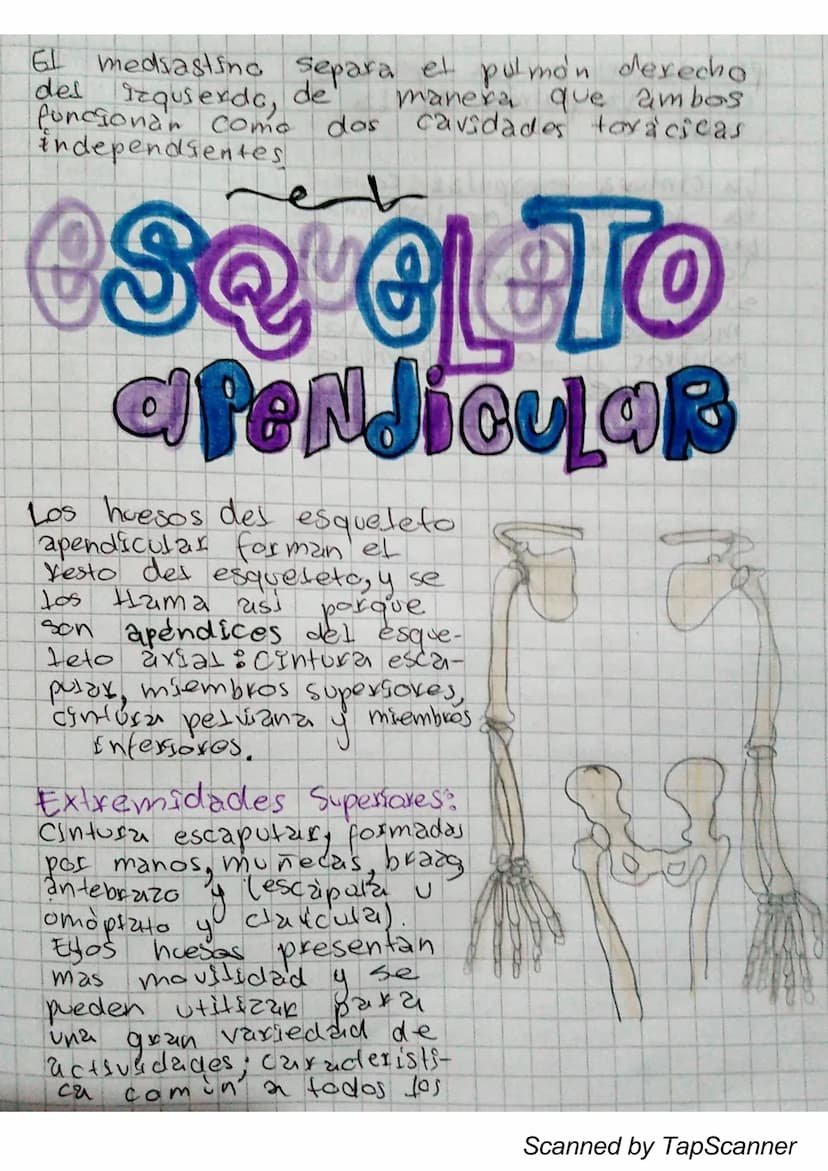 El mediastino separa el pulmón derecho
del izquierdo, de manera que ambos
funcionan como dos cavidades torácicas
independientes
el
esqueleto
apendicular
Los huesos del esqueleto
apendicular forman el
resto del esqueleto, y se
los llama así porque
son apéndices del esque-
leto axial: cintura esca-
pular, miembros superiores,
cintura pelviana y miembros
inferiores.
Extremidades Superiores:
Cintura escapular, formadas
por manos, muñecas, brazo
antebrazo y (escápula u
omòplato y clavicula).
Ellos huesos presentan
mas movilidad y se
pueden utilizar para
una gran variedad de
actividades; caracteristi-
ca comùn a todos los
Scanned by TapScanner